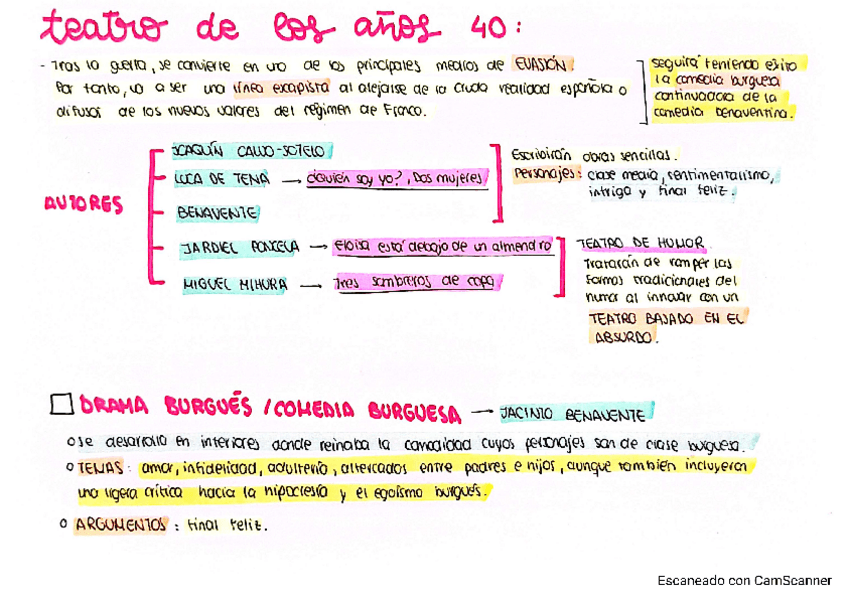 teatro de los años 40:
- Tras la guerra, se convierte en uno de los principales medios de EVASIÓN.
Por tanto, va a ser una línea escapista al alejarse de la cruda realidad española o
difusor de los nuevos valores del régimen de Franco.
seguirá teniendo éxito
la comedia burguesa
continuadora de la
comedia benaventina.
AUTORES
JOAQUÍN CALVO-SOTELO
LUCA DE TENA → ¿Quién soy yo?, Dos mujeres
BENAVENTE
Escribirán obras sencillas.
Personajes: clase media, sentimentalismo,
intriga y final feliz.
JARDIEL PONCELA → Eloísa está debajo de un almendro
MIGUEL MIHURA → Tres sombreros de copa
TEATRO DE HUMOR
Tratarán de romper las
formas tradicionales del
humor al innovar con un
TEATRO BASADO EN EL
ABSURDO.
DRAMA BURGUÉS / COMEDIA BURGUESA → JACINTO BENAVENTE
o se desarrolla en interiores donde reinaba la comodidad cuyos personajes son de clase burguesa.
o TEMAS: amor, infidelidad, adulterio, altercados entre padres e hijos, aunque también incluyeran
una ligera crítica hacia la hipocresía y el egoísmo burgués.
o ARGUMENTOS: final feliz.
Escaneado con CamScanner